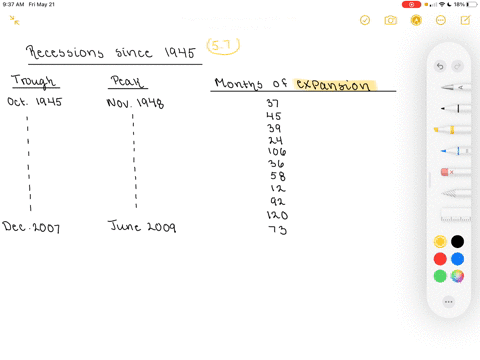 9:37 AM Fri May 21
18%
Recessions since 1945 (5.7)
Trough Peak Months of expansion
Oct. 1945 Nov. 1948 37
45
39
24
106
36
58
12
92
120
Dec. 2007 June 2009 73